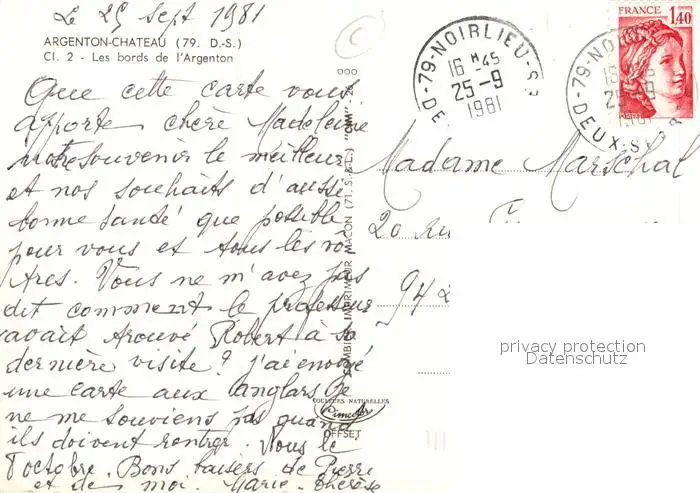 Le 25 Sept 1981
ARGENTON-CHATEAU (79. D.-S.)
Cl. 2 - Les bords de l'Argenton
Que cette carte vous
apporte chère Madeleine
notre souvenir le meilleur
et nos souhaits d'aussi
bonne santé que possible
pour vous et tous les vô
tres. Vous ne m'avez pas
dit comment le professeur
avait trouvé Robert à sa
dernière visite? j'ai envoyé
une carte aux Anglars Je
ne me souviens pas quand
ils doivent rentrer. Nous le
8 octobre. Bons baisers de Pierre
et de moi. Marie-Thérèse
COMBIER IMPRIMEUR MACON (71. S.-&-L.) "CIM"
COULEURS NATURELLES
Cimcolor
OFFSET
79-NOIRLIEU-S
16 H 45
25-9
1981
DE
79-NO
16 45
25-9
1981
DEUX-S
FRANCE
1,40
POSTES
Madame Marschal
20 ru
94
privacy protection
Datenschutz